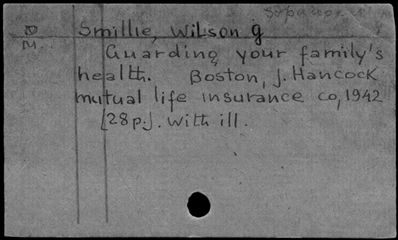 D Smillie, Wilson g
M. Guarding your family's
health. Boston, J. Hancock
mutual life insurance co, 1942
[28 p.]. With ill.